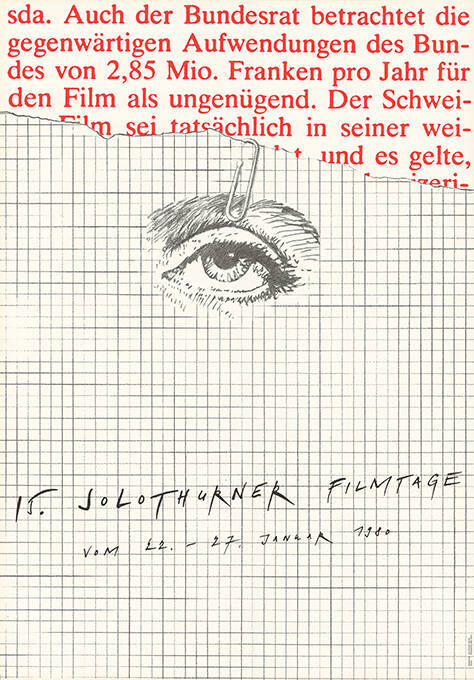 sda. Auch der Bundesrat betrachtet die
gegenwärtigen Aufwendungen des Bun-
des von 2,85 Mio. Franken pro Jahr für
den Film als ungenügend. Der Schwei-
Film sei tatsächlich in seiner wei-
und es gelte,
15. SOLOTHURNER FILMTAGE
VOM 22. – 27. JANUAR 1980